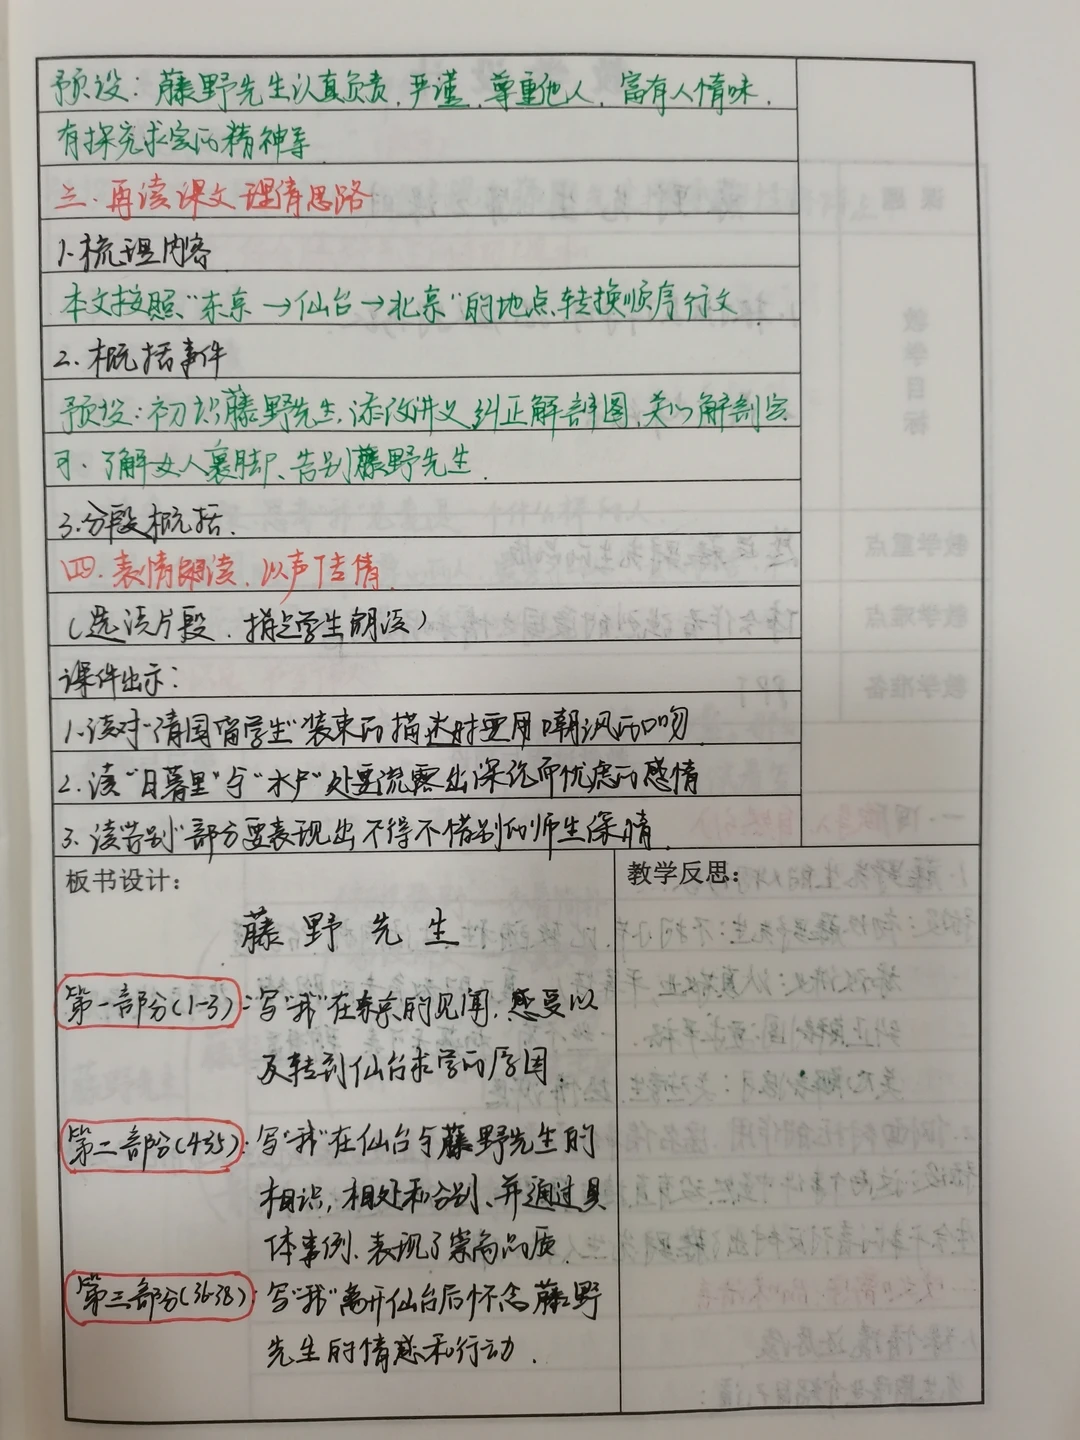 预设：藤野先生认真负责，严谨，尊重他人，富有人情味，
有探究求实的精神等
三、再读课文 理清思路
1.梳理内容
本文按照“东京→仙台→北京”的地点转换顺序行文
2.概括事件
预设：初识藤野先生、添改讲义、纠正解剖图、关心解剖实
习、了解女人裹脚、告别藤野先生.
3.分段概括.
四、表情朗读，以声传情.
（选读片段，指定学生朗读）
课件出示：
1.读对“清国留学生”装束的描述时要用嘲讽的口吻
2.读“日暮里”与“水户”处要流露出深沉而忧虑的感情
3.读“告别”部分要表现出不得不惜别的师生深情.
板书设计：
教学反思：
藤野先生
第一部分(1-3)：写“我”在东京的见闻，感受以
及转到仙台求学的原因
第二部分(4-35)：写“我”在仙台与藤野先生的
相识，相处和分别、并通过具
体事例、表现了崇高品质.
第三部分(36-38)：写“我”离开仙台后怀念藤野
先生的情感和行动.